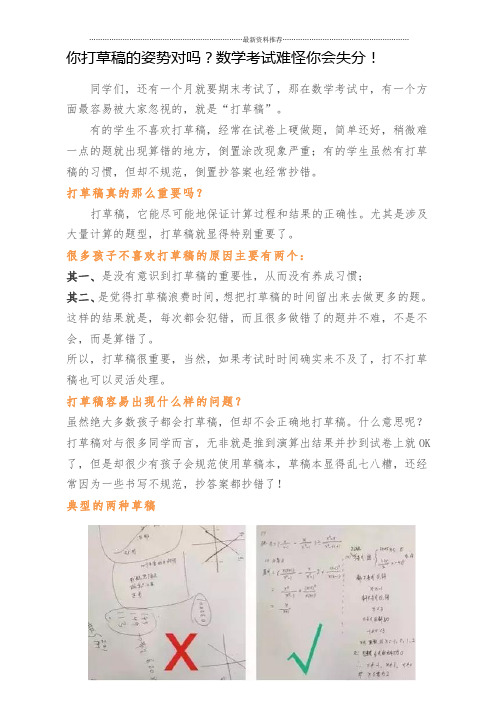 最新资料推荐
你打草稿的姿势对吗？数学考试难怪你会失分！
同学们，还有一个月就要期末考试了，那在数学考试中，有一个方
面最容易被大家忽视的，就是“打草稿”。
有的学生不喜欢打草稿，经常在试卷上硬做题，简单还好，稍微难
一点的题就出现算错的地方，倒置涂改现象严重；有的学生虽然有打草
稿的习惯，但却不规范，倒置抄答案也经常抄错。
打草稿真的那么重要吗？
打草稿，它能尽可能地保证计算过程和结果的正确性。尤其是涉及
大量计算的题型，打草稿就显得特别重要了。
很多孩子不喜欢打草稿的原因主要有两个：
其一、是没有意识到打草稿的重要性，从而没有养成习惯；
其二、是觉得打草稿浪费时间，想把打草稿的时间留出来去做更多的题。
这样的结果就是，每次都会犯错，而且很多做错了的题并不难，不是不
会，而是算错了。
所以，打草稿很重要，当然，如果考试时时间确实来不及了，打不打草
稿也可以灵活处理。
打草稿容易出现什么样的问题？
虽然绝大多数孩子都会打草稿，但却不会正确地打草稿。什么意思呢？
打草稿对与很多同学而言，无非就是推到演算出结果并抄到试卷上就OK
了，但是却很少有孩子会规范使用草稿本，草稿本显得乱七八糟，还经
常因为一些书写不规范，抄答案都抄错了！
典型的两种草稿